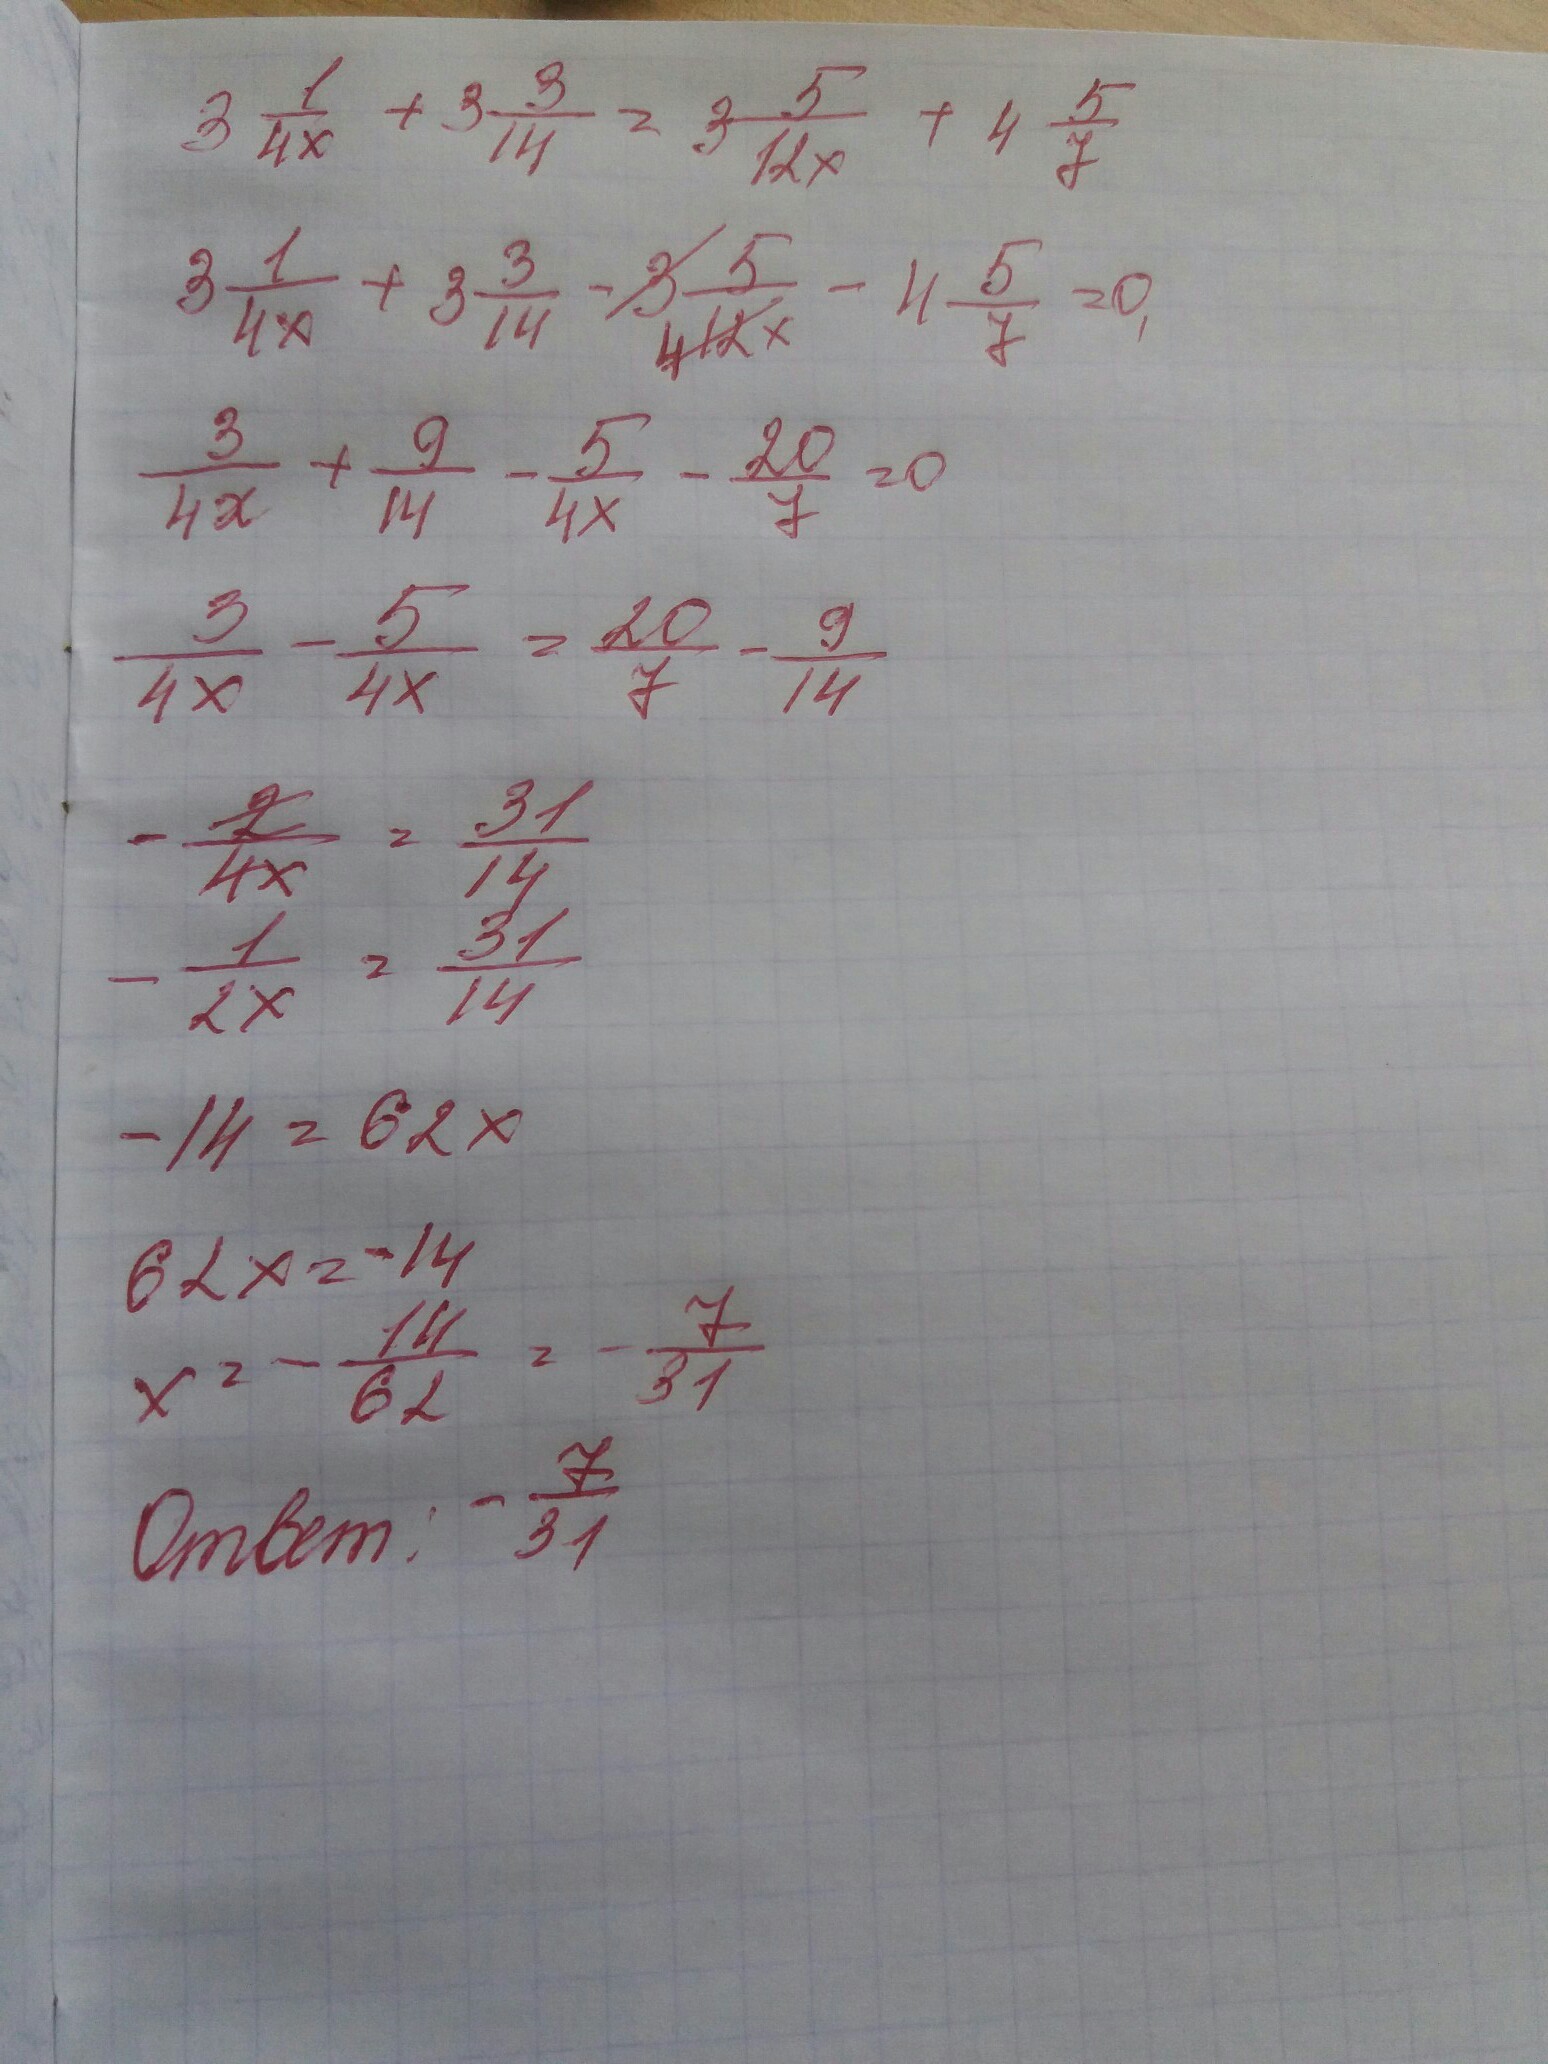 3 1/4x + 3 3/14 = 3 5/12x + 4 5/7
3 1/4x + 3 3/14 - 3 5/4 12x - 4 5/7 = 0,
3/4x + 9/14 - 5/4x - 20/7 = 0
3/4x - 5/4x = 20/7 - 9/14
- 2/4x = 31/14
- 1/2x = 31/14
-14 = 62x
62x = -14
x = - 14/62 = - 7/31
Ответ: - 7/31